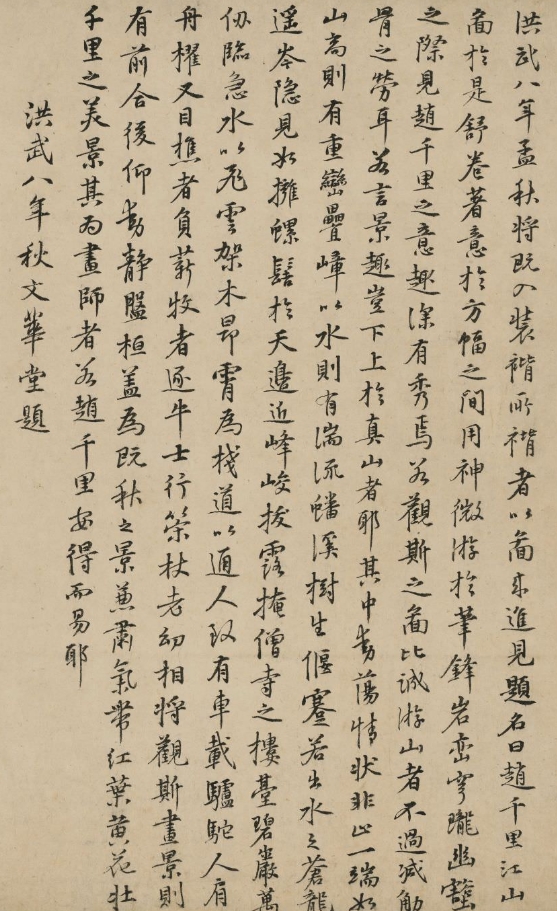 洪武八年孟秋將既入裝褙所褙者以圖來進見題名曰趙千里江山
圖於是舒卷著意於方幅之間用神微游於筆鋒岩巒穹隴幽壑
之際見趙千里之意趣深有秀焉若觀斯之圖比誠游山者不過減觔
骨之勞耳若言景趣豈下上於真山者耶其中動蕩情狀非止一端如
山高則有重巒疊嶂以水則有湍流蟠溪樹生偃蹇若出水之蒼龍
遥岑隐見如擁螺髻於天邊近峰峻拔露掩僧寺之樓臺碧巖萬
仭臨急水以飛雲架木昂霄為棧道以通人致有車載驢駝人肩
舟櫂又目樵者負薪牧者逐牛士行策杖老幼相將觀斯畫景則
有前合後仰動静盤桓盖為既秋之景兼肅氣帶紅葉黄花壯
千里之美景其為畫師者若趙千里安得而易耶
洪武八年秋文華堂題